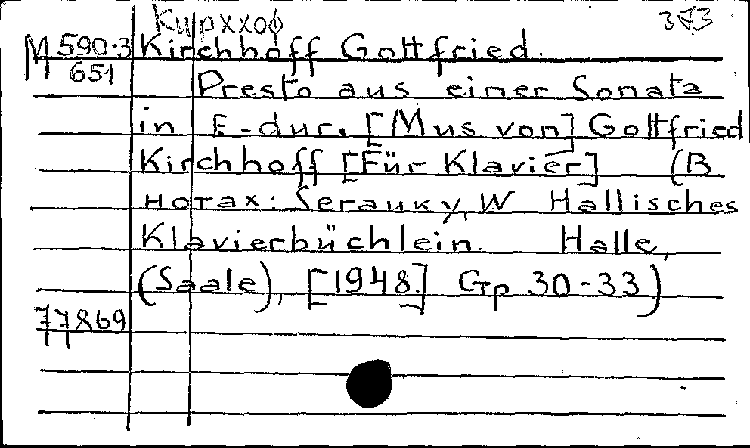 Кирххоф
M 590-3 Kirchhoff Gottfried.
651
Presto aus einer Sonata
in E-dur. [Mus von] Gottfried
Kirchhoff [Für Klavier] (В
нотах: Serauky, W Hallisches
Klavierbüchlein. Halle,
(Saale), [1948.] Стр 30-33)
77869